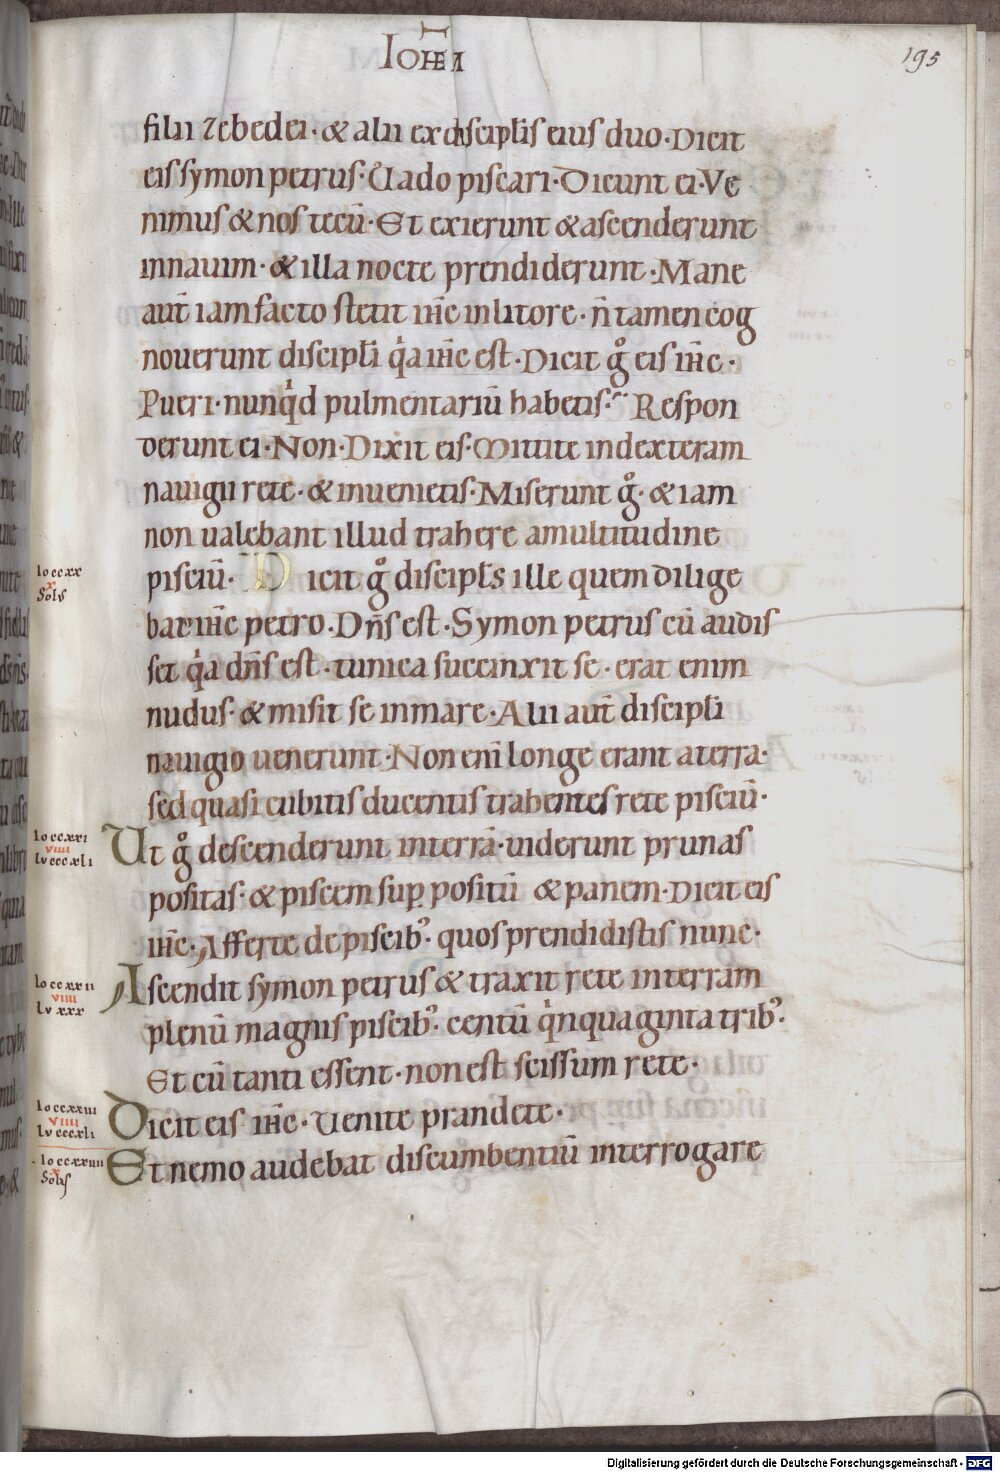 IOHA
195
filii zebedei· & alii ex discipl̄is eius duo· Dicit
eis symon petrus· Uado piscari· Dicunt ei· Ve
nimus & nos tecū· Et exierunt & ascenderunt
in nauim· & illa nocte prendiderunt· Mane
aut̄ iam facto stetit ih̄c in litore· n̄ tamen cog
nouerunt discipl̄i q̇a ih̄c est· Dicit g̊ eis ih̄c·
Pueri· nunq̇d pulmentariū habetis· Respon
derunt ei· Non· Dixit eis· Mittite in dexteram
nauigii rete· & inuenietis· Miserunt g̊· & iam
non ualebant illud trahere a multitudine
pisciū· Dicit g̊ discipl̄s ille quem dilige
bat ih̄c petro· Dn̄s est· Symon petrus cū audis
set q̇a dn̄s est· tunica succinxit se· erat enim
nudus· & misit se in mare· Alii aut̄ discipl̄i
nauigio uenerunt· Non eni̅ longe erant a terra·
sed quasi cubitis ducentis trahentes rete pisciū·
Ut g̊ descenderunt in terrā· uiderunt prunas
positas· & piscem sup̱ positū & panem· Dicit eis
ih̄c· Afferte de piscib᾿· quos prendidistis nunc·
Ascendit symon petrus & traxit rete in terram
plenū magnis piscib᾿· centū q̇nquaginta trib᾿·
Et cū tanti essent· non est scissum rete·
Dicit eis ih̄c· Uenite prandete·
Et nemo audebat discumbentiū interrogare
Io ccxx
x
Sol᾿s
Io ccxxi
viiii
Lv cccxli
Io ccxxii
viiii
Lv xxx
Io ccxxiii
viiii
Lv cccxli
Io ccxxiiii
x
Sol᾿s
Digitalisierung gefördert durch die Deutsche Forschungsgemeinschaft - DFG